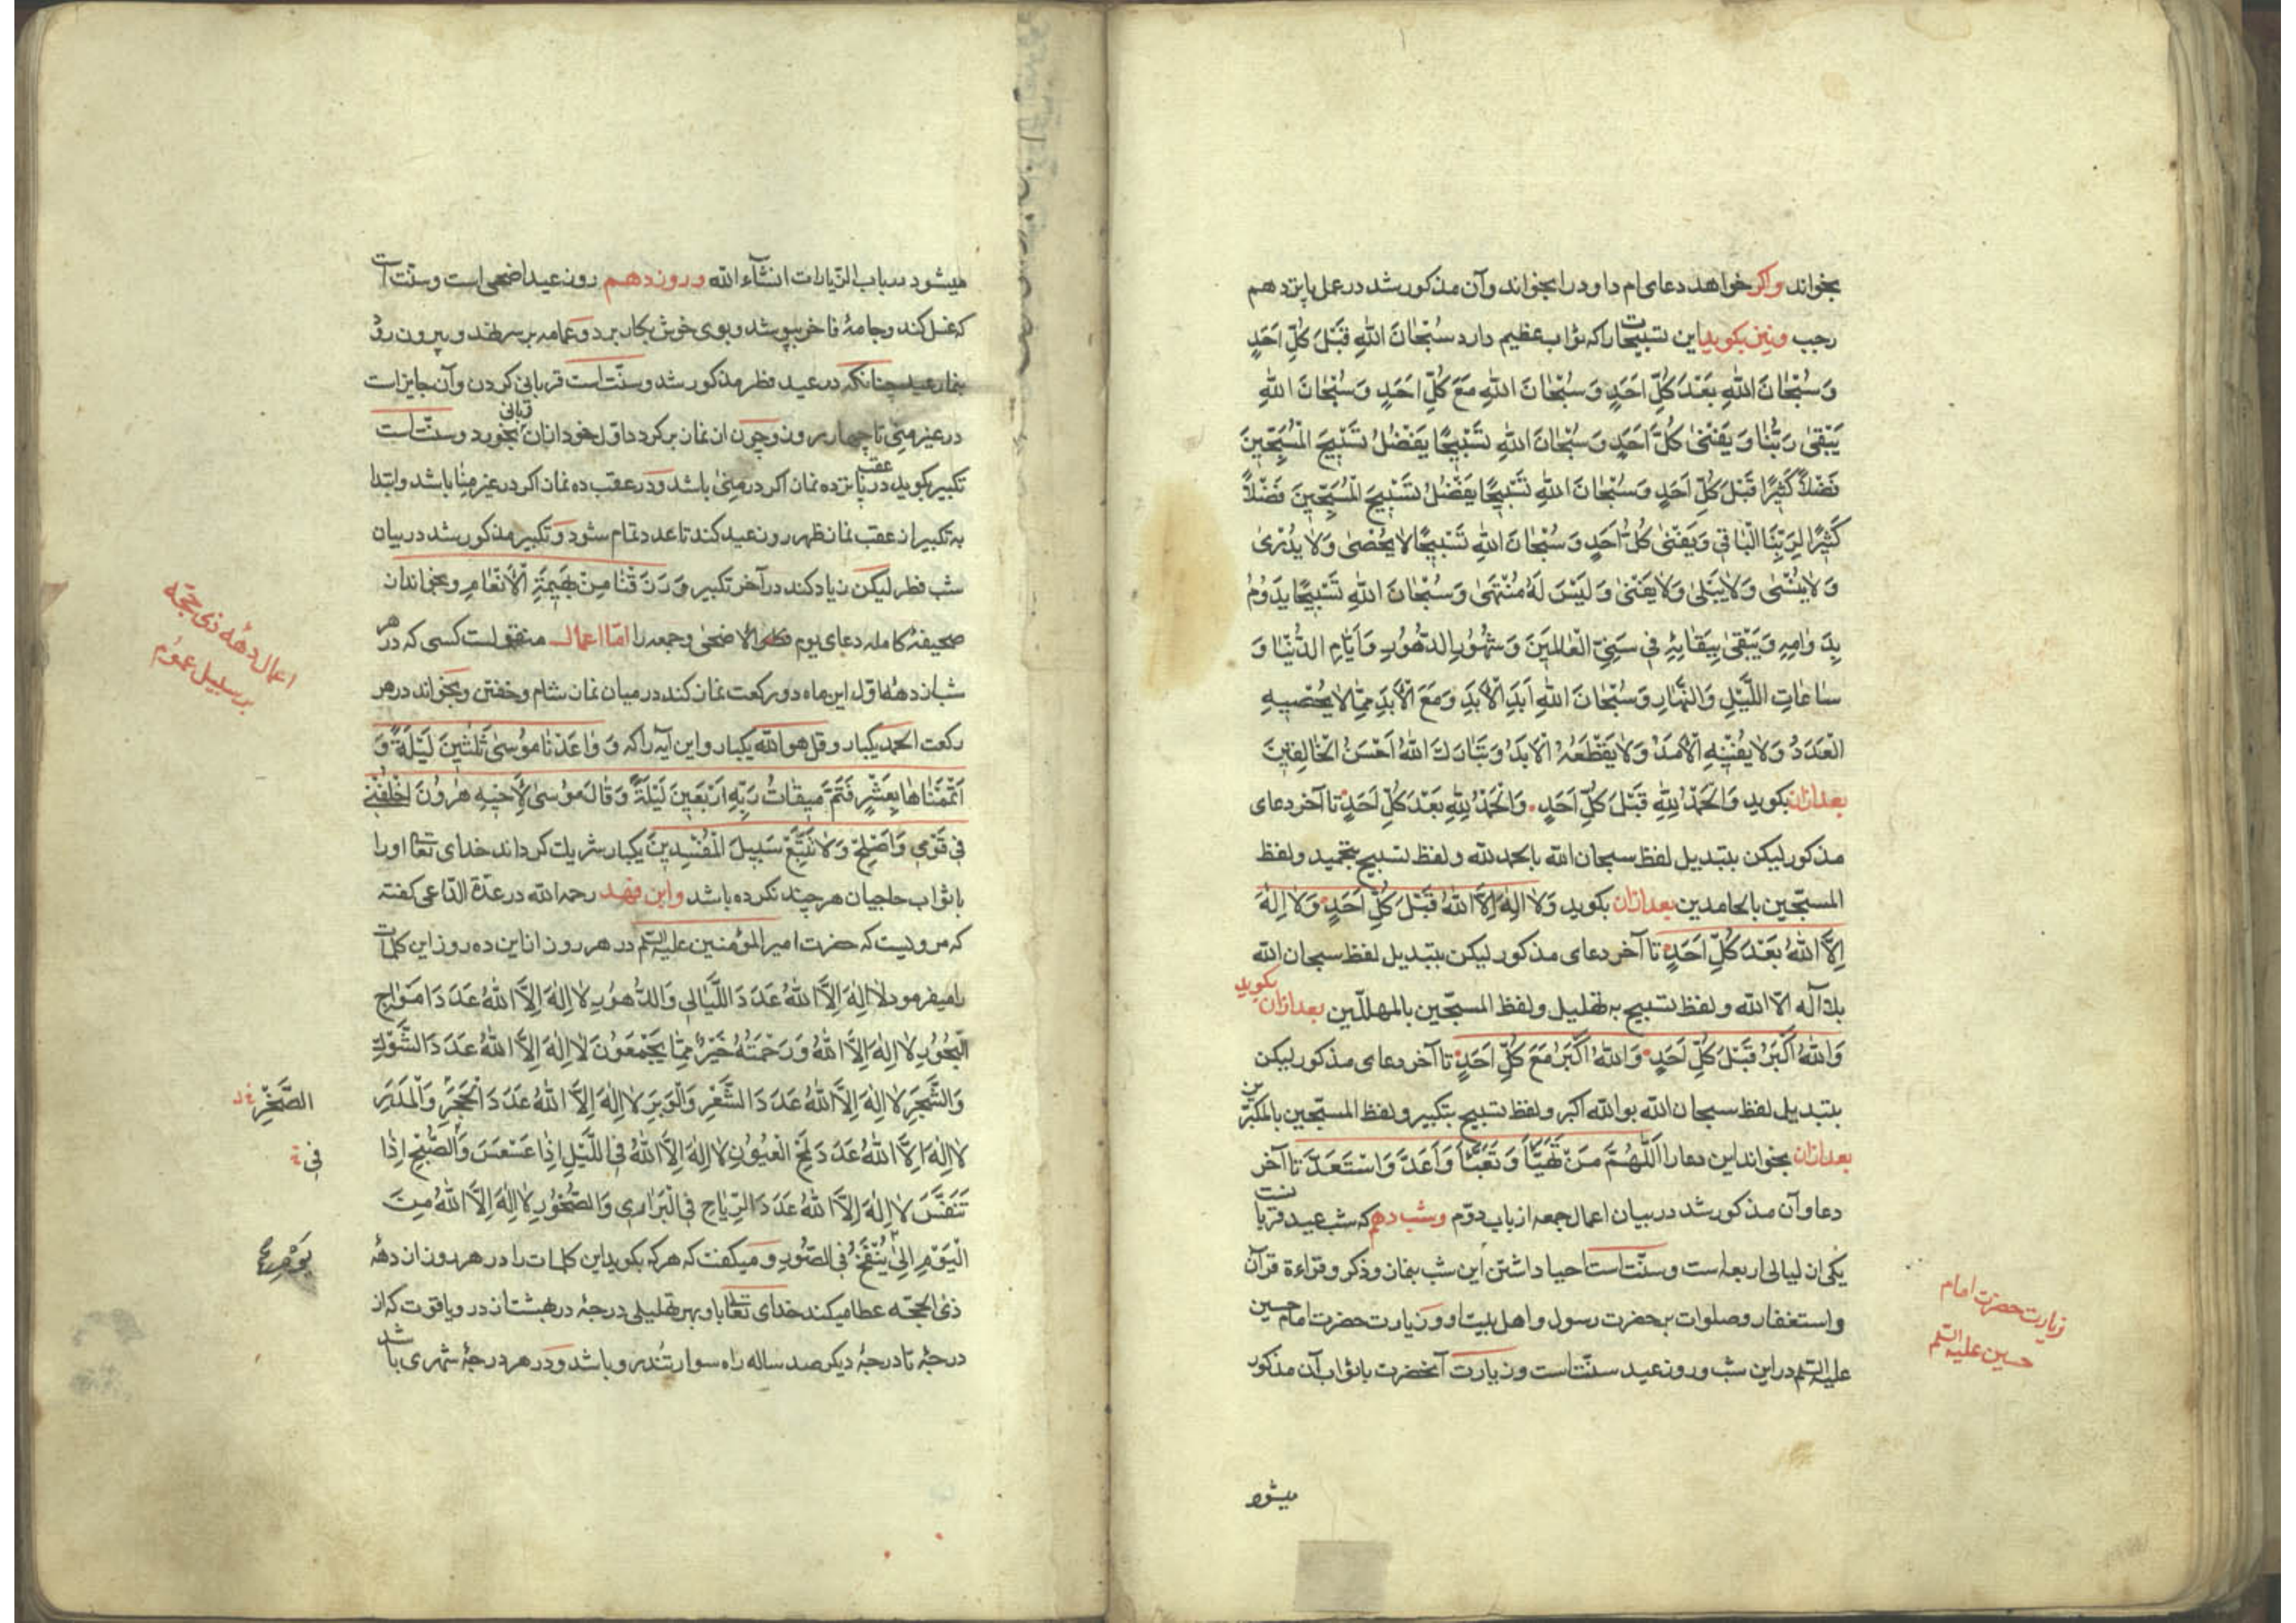 بخواند واکر خواهد دعای ام داود را بخواند وآن مذکور شد در عمل پانزدهم
رجب ونیز بکوید این تسبیحات را که ثواب عظیم دارد سُبْحٰانَ اللّٰهِ قَبْلَ كُلِّ اَحَدٍ
وَ سُبْحٰانَ اللّٰهِ بَعْدَ كُلِّ اَحَدٍ وَ سُبْحٰانَ اللّٰهِ مَعَ كُلِّ اَحَدٍ وَ سُبْحٰانَ اللّٰهِ
يَبْقىٰ رَبُّنٰا وَ يَفْنىٰ كُلُّ اَحَدٍ وَ سُبْحٰانَ اللّٰهِ تَسْبيحًا يَفْضُلُ تَسْبيحَ الْمُسَبِّحينَ
فَضْلاً كَثيرًا قَبْلَ كُلِّ اَحَدٍ وَ سُبْحٰانَ اللّٰهِ تَسْبيحًا يَفْضُلُ تَسْبيحَ الْمُسَبِّحينَ فَضْلاً
كَثيرًا لِرَبِّنَا الْبٰاقي وَ يَفْنىٰ كُلُّ اَحَدٍ وَ سُبْحٰانَ اللّٰهِ تَسْبيحًا لاٰ يُحْصىٰ وَ لاٰ يُدْرىٰ
وَ لاٰ يُنْسىٰ وَ لاٰ يَبْلىٰ وَ لاٰ يَفْنىٰ وَ لَيْسَ لَهُ مُنْتَهىٰ وَ سُبْحٰانَ اللّٰهِ تَسْبيحًا يَدُومُ
بِدَوٰامِهِ وَ يَبْقىٰ بِبَقٰائِهِ في سِنِيِّ الْعٰالَمينَ وَ شُهُورِ الدُّهُورِ وَ اَيّٰامِ الدُّنْيٰا وَ
سٰاعٰاتِ اللَّيْلِ وَ النَّهٰارِ وَ سُبْحٰانَ اللّٰهِ اَبَدَ الْاَبَدِ وَ مَعَ الْاَبَدِ مِمّٰا لاٰ يُحْصيهِ
الْعَدَدُ وَ لاٰ يُفْنيهِ الْاَمَدُ وَ لاٰ يَقْطَعُهُ الْاَبَدُ وَ تَبٰارَكَ اللّٰهُ اَحْسَنُ الْخٰالِقينَ
بعد ازان بکوید وَ الْحَمْدُ لِلّٰهِ قَبْلَ كُلِّ اَحَدٍ وَ الْحَمْدُ لِلّٰهِ بَعْدَ كُلِّ اَحَدٍ تا آخر دعای
مذکور لیکن بتبدیل لفظ سبحان الله با الحمد لله ولفظ تسبیح بتحمید ولفظ
المسبّحین بالحامدین بعد ازان بکوید وَ لاٰ اِلٰهَ اِلاَّ اللّٰهُ قَبْلَ كُلِّ اَحَدٍ وَ لاٰ اِلٰهَ
اِلاَّ اللّٰهُ بَعْدَ كُلِّ اَحَدٍ تا آخر دعای مذکور لیکن بتبدیل لفظ سبحان الله
بلا اله الا الله ولفظ تسبیح به تهلیل ولفظ المسبّحین بالمهلّلین بعد ازان بکوید
وَ اللّٰهُ اَكْبَرُ قَبْلَ كُلِّ اَحَدٍ وَ اللّٰهُ اَكْبَرُ مَعَ كُلِّ اَحَدٍ تا آخر دعای مذکور لیکن
بتبدیل لفظ سبحان الله بوالله اکبر ولفظ تسبیح بتکبیر ولفظ المسبّحین بالمکبّرین
بعد ازان بخواند این دعا را اَللّٰهُمَّ مَنْ تَهَيَّاَ وَ تَعَبَّاَ وَ اَعَدَّ وَ اسْتَعَدَّ تا آخر
دعا وآن مذکور شد در بیان اعمال جمعه از باب دوّم وشب دهم که شب عید قربانست
یکی از لیالی اربعه است وسنّت است احیا داشتن این شب بنماز وذکر وقراءة قرآن
واستغفار وصلوات بر حضرت رسول واهل بیت او وزیارت حضرت امام حسین
علیه السلم در این شب وروز عید سنّت است وزیارت آنحضرت با ثواب آن مذکور
زیارت حضرت امام
حسین علیه السلم
میشود
میشود در باب الزّیارات انشآء الله وروز دهم روز عید اضحی است وسنّت است
که غسل کند وجامهٔ فاخر بپوشد وبوی خوش بکار برد وعمامه بر سر نهد وبیرون رود
بنماز عید چنانکه در عید فطر مذکور شد وسنّت است قربانی کردن وآن جایز است
در غیر منی تا چهار روز وچون از نماز برکردد اوّل خود ازان قربانی بخورد وسنّت است
تکبیر بکوید در عقب پانزده نماز اکر در منی باشد ودر عقب ده نماز اکر در غیر منا باشد وابتدا
به تکبیر از عقب نماز ظهر روز عید کند تا عدد تمام شود وتکبیر مذکور شد در بیان
شب فطر لیکن زیاد کند در آخر تکبیر وَ رَزَقَنٰا مِنْ بَهيمَةِ الْاَنْعٰامِ وبخواند از
صحیفهٔ کامله دعای یوم الاضحی وجمعه را امّا اعمال متفق است کسی که در هر
شب از دههٔ اوّل این ماه دو رکعت نماز کند در میان نماز شام وخفتن وبخواند در هر
رکعت الحمد یکبار وقل هو الله یکبار واین آیه را که وَ وٰاعَدْنٰا مُوسىٰ ثَلٰثينَ لَيْلَةً وَ
اَتْمَمْنٰاهٰا بِعَشْرٍ فَتَمَّ ميقٰاتُ رَبِّهِ اَرْبَعينَ لَيْلَةً وَ قٰالَ مُوسىٰ لِاَخيهِ هٰرُونَ اخْلُفْني
في قَوْمي وَ اَصْلِحْ وَ لاٰ تَتَّبِعْ سَبيلَ الْمُفْسِدينَ یکبار شریک کرداند خدای تعالی او را
با ثواب حاجیان هر چند نکرده باشد وابن فهد رحمه الله در عدّة الدّاعی کفته
که مرویست که حضرت امیر المؤمنین علیه السلم در هر روز از این ده روز این کلمات
را میفرمود لاٰ اِلٰهَ اِلاَّ اللّٰهُ عَدَدَ اللَّيٰالي وَ الدُّهُورِ لاٰ اِلٰهَ اِلاَّ اللّٰهُ عَدَدَ اَمْوٰاجِ
الْبُحُورِ لاٰ اِلٰهَ اِلاَّ اللّٰهُ وَ رَحْمَتُهُ خَيْرٌ مِمّٰا يَجْمَعُونَ لاٰ اِلٰهَ اِلاَّ اللّٰهُ عَدَدَ الشَّوْكِ
وَ الشَّجَرِ لاٰ اِلٰهَ اِلاَّ اللّٰهُ عَدَدَ الشَّعْرِ وَ الْوَبَرِ لاٰ اِلٰهَ اِلاَّ اللّٰهُ عَدَدَ الْحَجَرِ وَ الْمَدَرِ
لاٰ اِلٰهَ اِلاَّ اللّٰهُ عَدَدَ لَمْحِ الْعُيُونِ لاٰ اِلٰهَ اِلاَّ اللّٰهُ فِي اللَّيْلِ اِذٰا عَسْعَسَ وَ الصُّبْحِ اِذٰا
تَنَفَّسَ لاٰ اِلٰهَ اِلاَّ اللّٰهُ عَدَدَ الرِّيٰاحِ فِي الْبَرٰاري وَ الصُّخُورِ لاٰ اِلٰهَ اِلاَّ اللّٰهُ مِنَ
الْيَوْمِ اِلىٰ يُنْفَخُ فِي الصُّورِ ومیکفت که هر که بکوید این کلمات را در هر روز از دههٔ
ذی الحجّه عطا میکند خدای تعالی باو بهر تهلیلی درجهٔ در بهشت از در ویاقوت که از
درجهٔ تا درجهٔ دیکر صد ساله راه سوار تندرو باشد ودر هر درجهٔ شهری باشد
اعمال دههٔ ذی حجّه
بر سبیل عموم
الصَّخْرِ
في
يَوْمِ